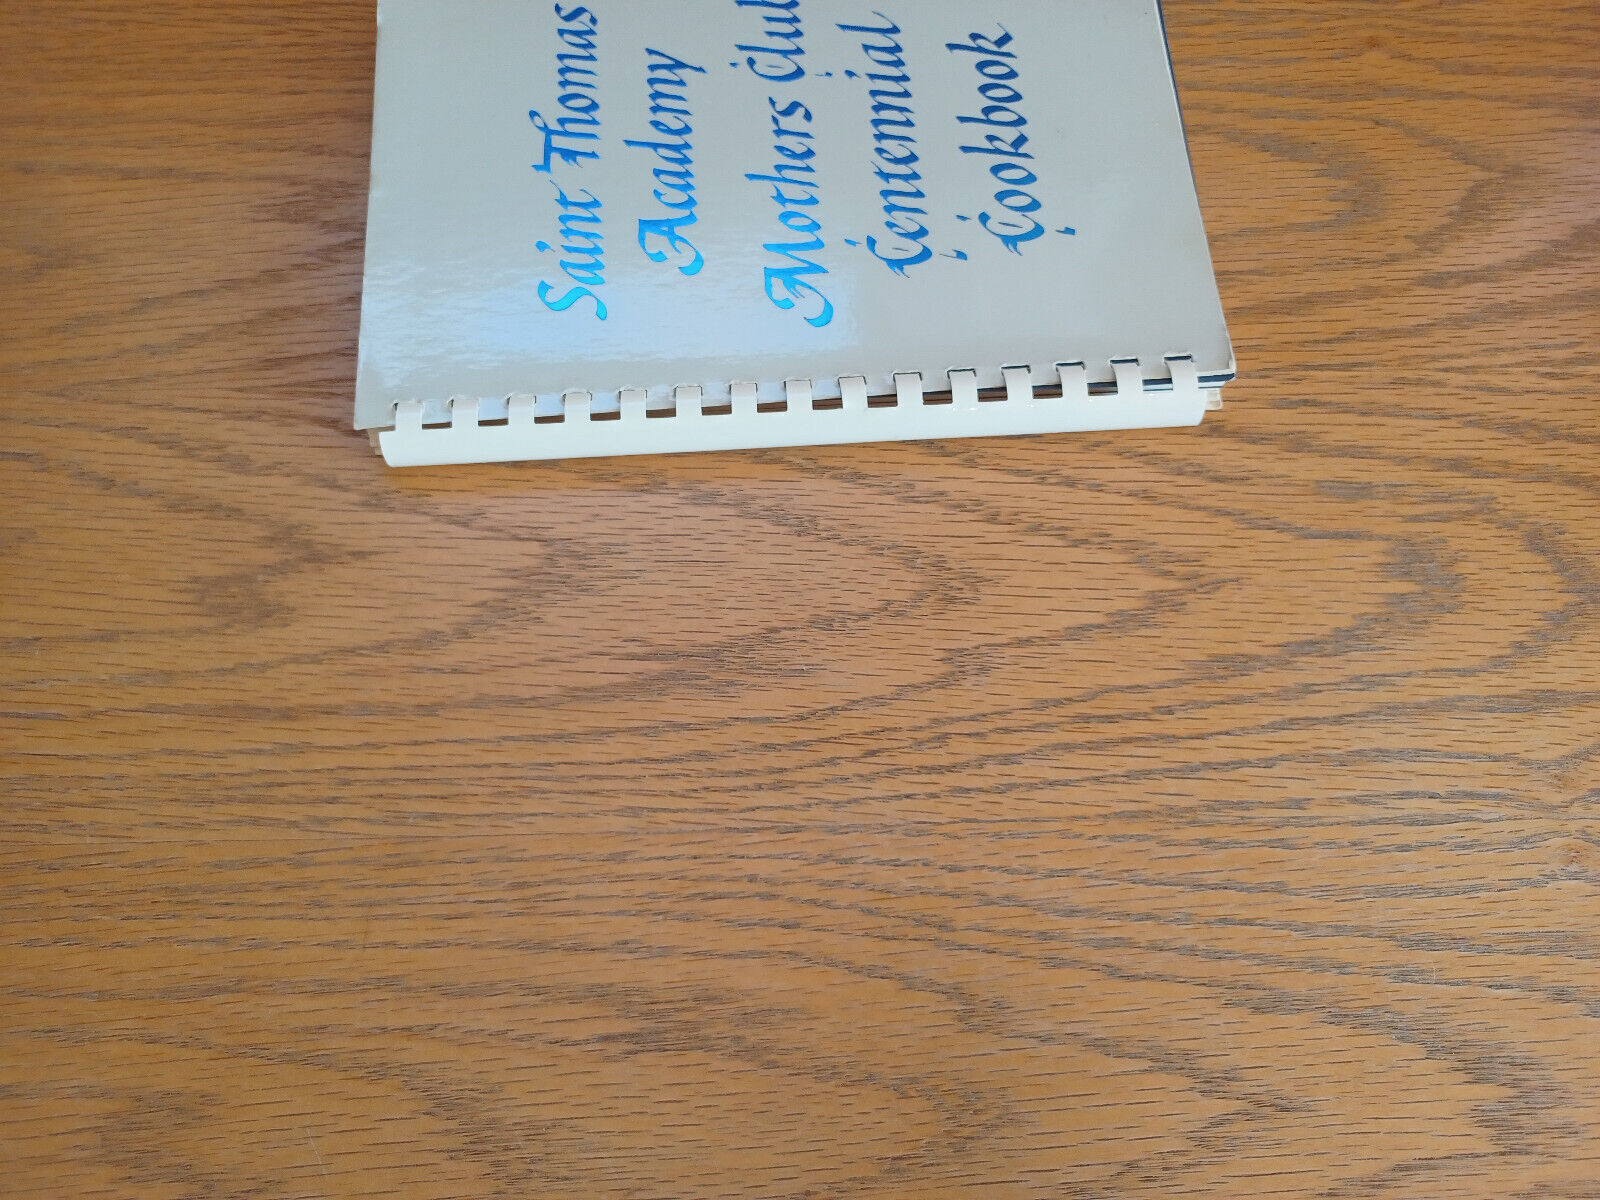 Saint Thomas
Academy
Mothers Club
Centennial
Cookbook